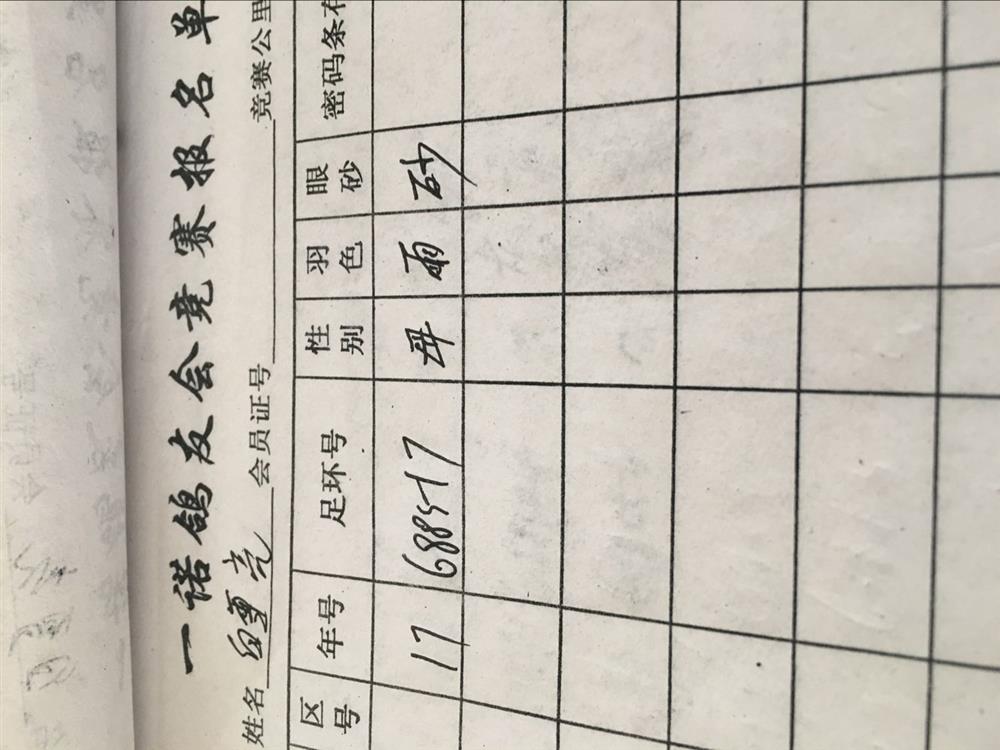 一诺鸽友会竞赛报名单
姓名 会员证号 竞赛公里
区号 年号 足环号 性别 羽色 眼砂 密码条有
17 688517 雨 砂